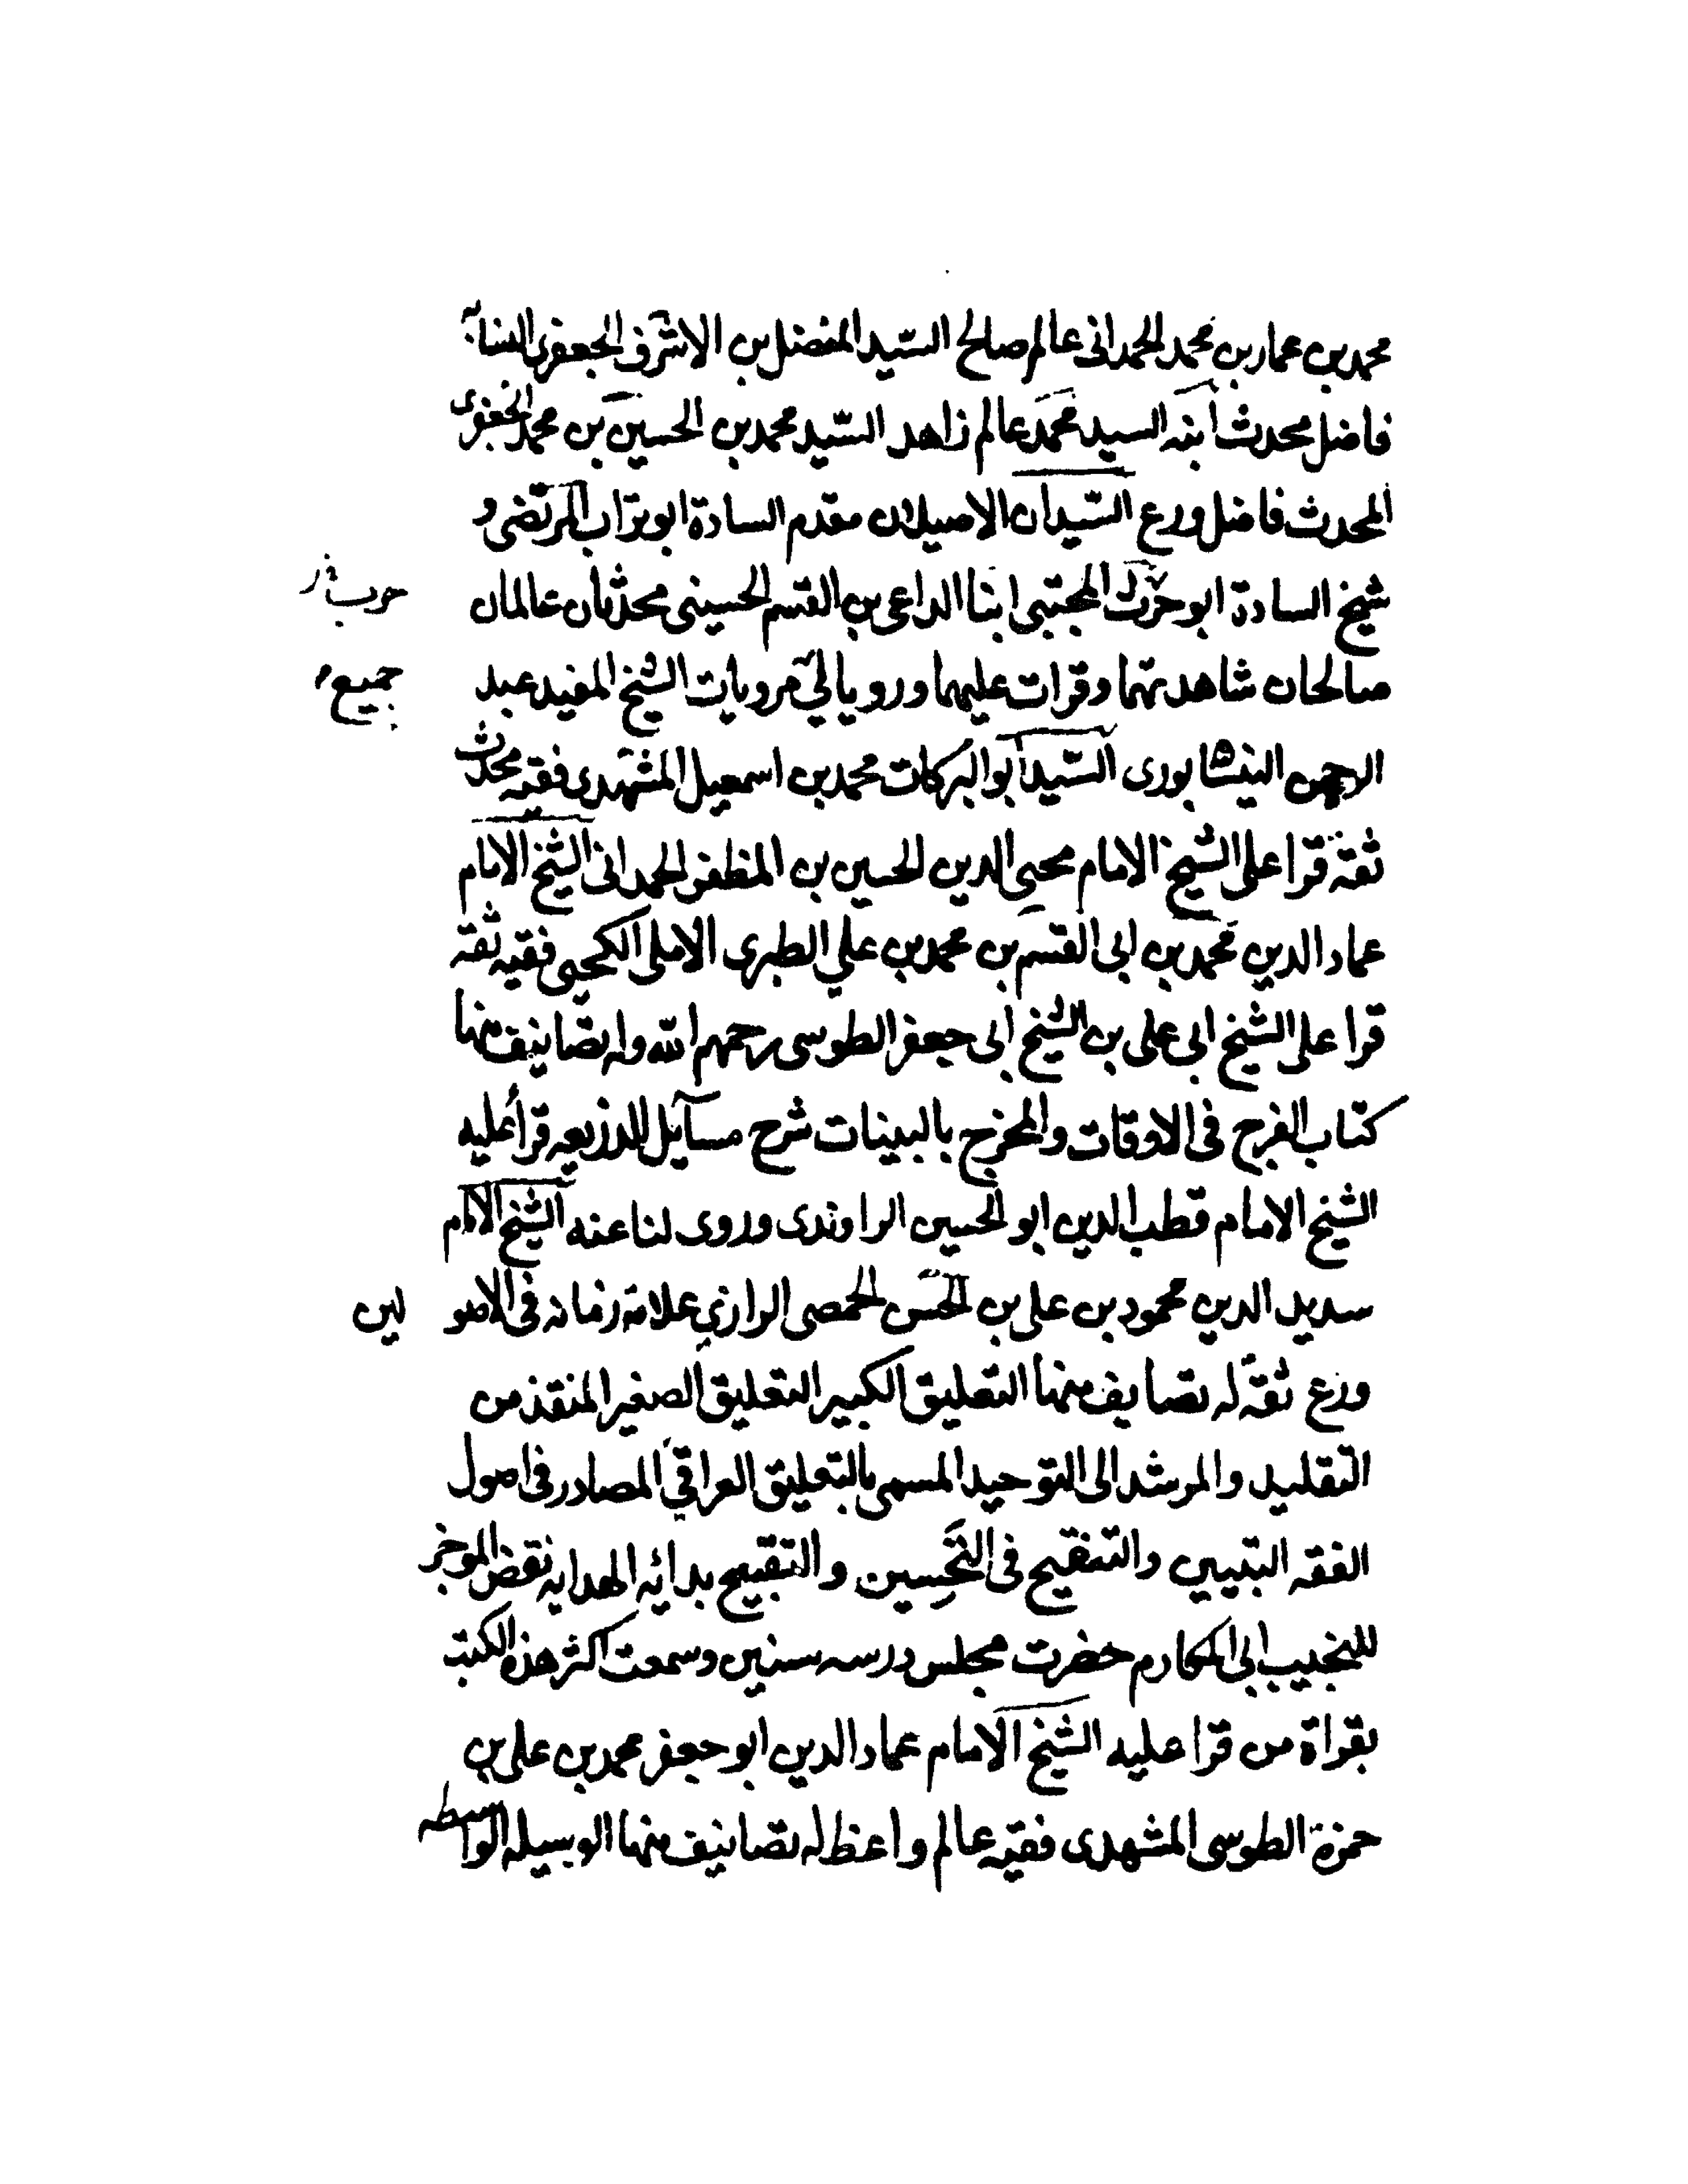 محمد بن عمار بن محمد الحمدانى عالم صالح السّيد المفضل بن الاشرف الجعفرى النسابه
فاضل محدث ابنه السيد محمد عالم زاهد السّيد محمد بن الحسين بن محمد الجعفرى
المحدث فاضل ورع السّيدان الاصيلان مقدم السادة ابو تراب المرتضى و
شيخ السادة ابو حرب المجتبى ابنا الداعى بن القسم الحسينى محدثان عالمان
صالحان شاهدتهما وقرات عليهما ورويا لي مرويات الشيخ المفيد عبد
جميع
الرحمن النيشابورى السّيد ابو البركات محمد بن اسمعيل المشهدى فقيه محدث
ثقة قرا على الشيخ الامام محيى الدين الحسين بن المظفر الحمدانى الشيخ الامام
عماد الدين محمد بن ابى القسم بن محمد بن علي الطبرى الاملى الكجى فقيه ثقة
قرا على الشيخ ابى على بن الشيخ ابى جعفر الطوسى رحمهم الله وله تصانيف منها
كتاب الفرج فى الاوقات والمخرج بالبينات شرح مسآيل الذريعه قرأ عليه
الشيخ الامام قطب الدين ابو الحسين الراوندى وروى لنا عنه الشيخ الامام
سديد الدين محمود بن على بن الحسن الحمصى الرازي علامة زمانه فى الاصولين
ورع ثقة له تصانيف منها التعليق الكبير التعليق الصغير المنقذ من
التقليد والمرشد الى التوحيد المسمى بالتعليق العراقي المصادر فى اصول
الفقه التبيين والتنقيح فى التَحسين والتقبيح بدائه الهدايه نقض الموجز
للنجيب ابى المكارم حضرت مجلس درسه سنين وسمعت اكثر هذه الكتب
بقراة من قرا عليه الشيخ الامام عماد الدين ابو جعفر محمد بن على بن
حمزة الطوسى المشهدى فقيه عالم واعظ له تصانيف منها الوسيله الواسطه